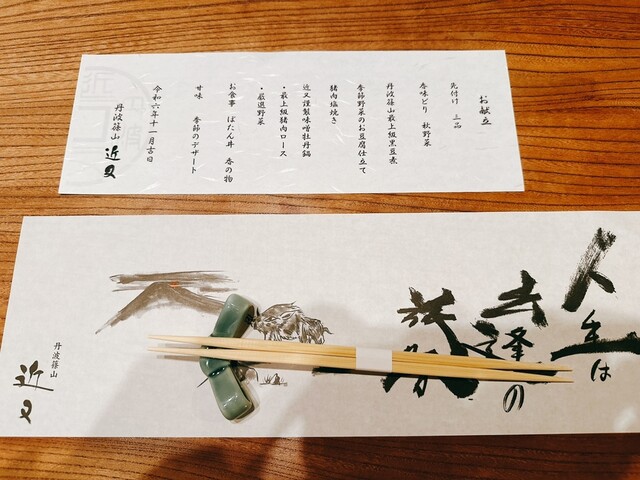 お献立
先付け 三品
香味どり 秋野菜
丹波篠山最上級黒豆煮
季節野菜のお豆腐仕立て
猪肉塩焼き
近又謹製味噌牡丹鍋
・最上級猪肉ロース
・厳選野菜
お食事 ぼたん丼 香の物
甘味 季節のデザート
令和六年十一月吉日
丹波篠山 近又
人生は
出逢の
旅
丹波篠山
近又